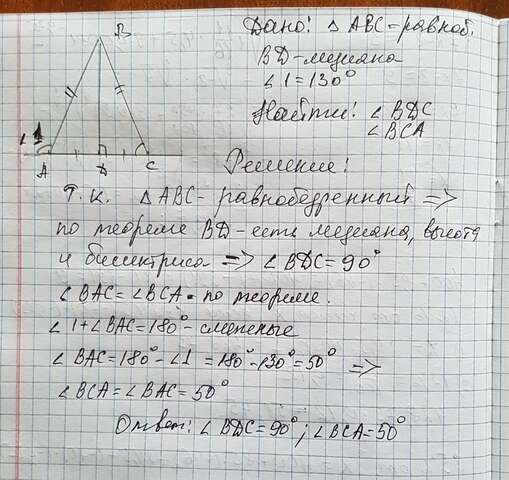 Дано: △ ABC - равноб.
BD - медиана
∠1 = 130°
Найти: ∠BDC
∠BCA
B
∠1
A D C
Решение:
Т.К. △ABC - равнобедренный =>
по теореме BD - есть медиана, высота
и биссектриса => ∠BDC = 90°
∠BAC = ∠BCA - по теореме.
∠1 + ∠BAC = 180° - смежные
∠BAC = 180° - ∠1 = 180° - 130° = 50° =>
∠BCA = ∠BAC = 50°
Ответ: ∠BDC = 90°; ∠BCA = 50°